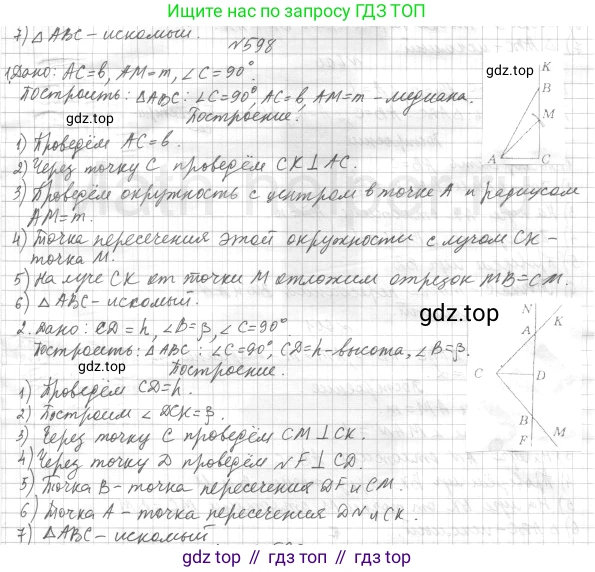 Ищите ответы по запросу ГДЗ ТОП
7) △ABC – искомый.
№598
1. Дано: AC=b, AM=m, ∠C=90°.
Построить: △ABC: ∠C=90°, AC=b, AM=m – медиана.
Построение.
1) Проведём AC=b.
2) Через точку C проведём CK⊥AC.
3) Проведём окружность с центром в точке A и радиусом
AM=m.
4) Точка пересечения этой окружности с лучом CK –
точка M.
5) На луче CK от точки M отложим отрезок MB=CM.
6) △ABC – искомый.
2. Дано: CD=h, ∠B=β, ∠C=90°
Построить: △ABC: ∠C=90°, CD=h – высота, ∠B=β.
Построение.
1) Проведём CD=h.
2) Построим ∠DCK=β.
3) Через точку C проведём CM⊥CK.
4) Через точку D проведём NF⊥CD.
5) Точка B – точка пересечения DF и CM.
6) Точка A – точка пересечения DN и CK.
7) △ABC – искомый
gdz.top
gdz.top
gdz.top
gdz.top
K
B
M
A
C
N
A
K
C
D
B
F
M
gdz.top // гдз.топ // gdz.top // гдз.топ